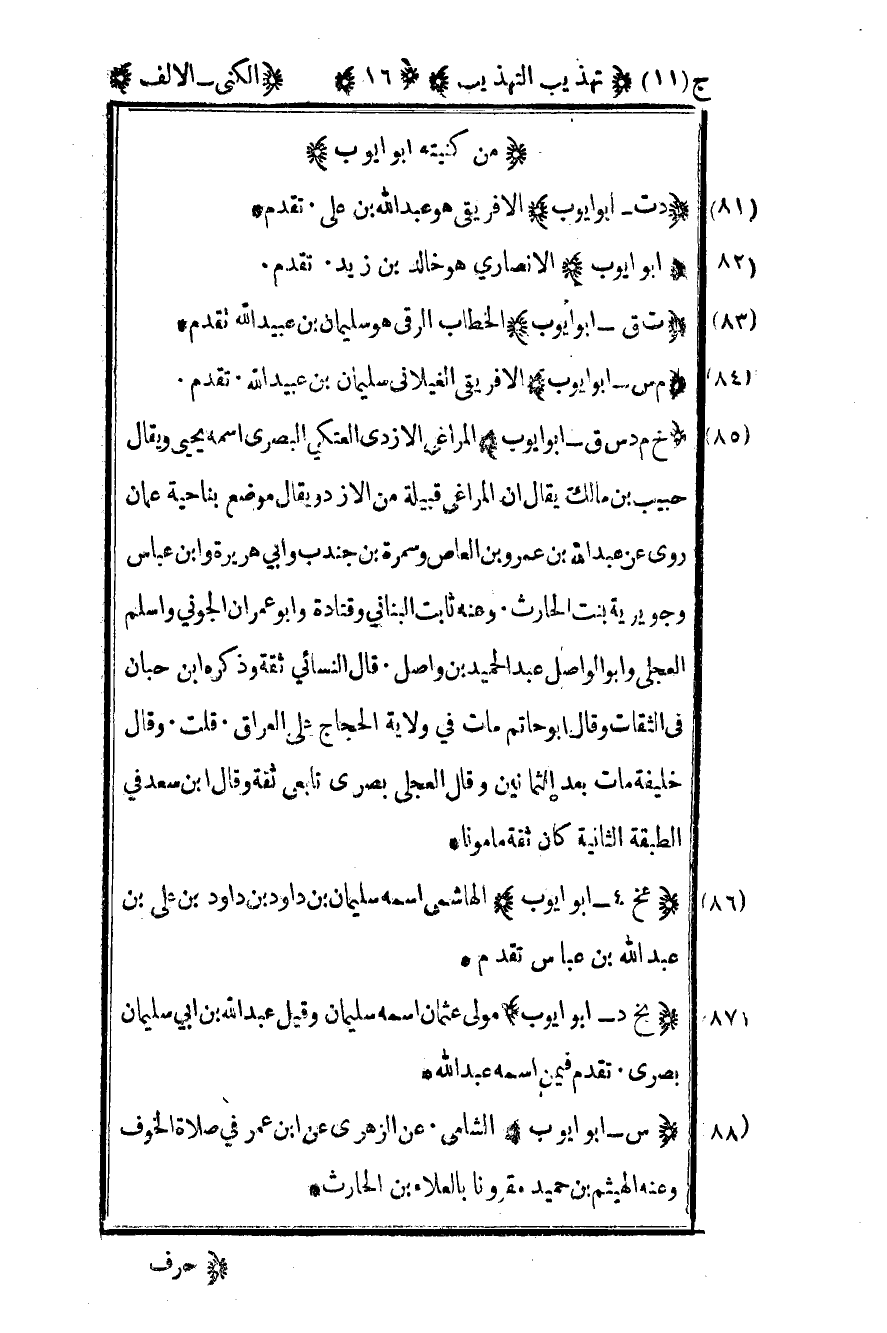 ج(١١) ﴿ تهذيب التهذيب ﴾ ﴿ ١٦ ﴾ ﴿ الكنى ــ الالف ﴾
﴿ من كنيته ابو ايوب ﴾
(٨١) ﴿ دت ــ ابوايوب ﴾ الافريقى هوعبدالله بن على · تقدم *
(٨٢) ﴿ ابو ايوب ﴾ الانصاري هوخالد بن زيد · تقدم ·
(٨٣) ﴿ ت ق ــ ابوأيوب ﴾ الخطاب الرقى هوسليمان بن عبيدالله تقدم *
(٨٤) ﴿ م س ــ ابوايوب ﴾ الافريقى الغيلانى سليمان بن عبيدالله · تقدم ·
(٨٥) ﴿ خ م د س ق ــ ابوايوب ﴾ المراغي الازدى العتكي البصرى اسمه يحيى ويقال
حبيب بن مالك يقال ان المراغي قبيلة من الازد ويقال موضع بناحية عمان
روى عن عبدالله بن عمرو بن العاص وسمرة بن جندب وابي هريرة وابن عباس
وجويرية بنت الحارث · وعنه ثابت البناني وقتادة وابو عمران الجوني واسلم
العجلي وابوالواصل عبدالحميد بن واصل · قال النسائي ثقة وذكره ابن حبان
فى الثقات وقال ابوحاتم مات في ولاية الحجاج على العراق · قلت · وقال
خليفة مات بعد الثمانين وقال العجلى بصرى تابعى ثقة وقال ابن سعد في
الطبقة الثانية كان ثقة مامونا *
(٨٦) ﴿ عخ ٤ ــ ابو ايوب ﴾ الهاشمى اسمه سليمان بن داود بن داود بن على بن
عبدالله بن عباس تقدم *
(٨٧) ﴿ بخ د ــ ابو ايوب ﴾ مولى عثمان اسمه سليمان وقيل عبدالله بن ابي سليمان
بصرى · تقدم فيمن اسمه عبدالله *
(٨٨) ﴿ س ــ ابو ايوب ﴾ الشامى · عن الزهرى عن ابن عمر في صلاة الخوف
وعنه الهيثم بن حميد مقرونا بالعلاء بن الحارث *
﴿ حرف